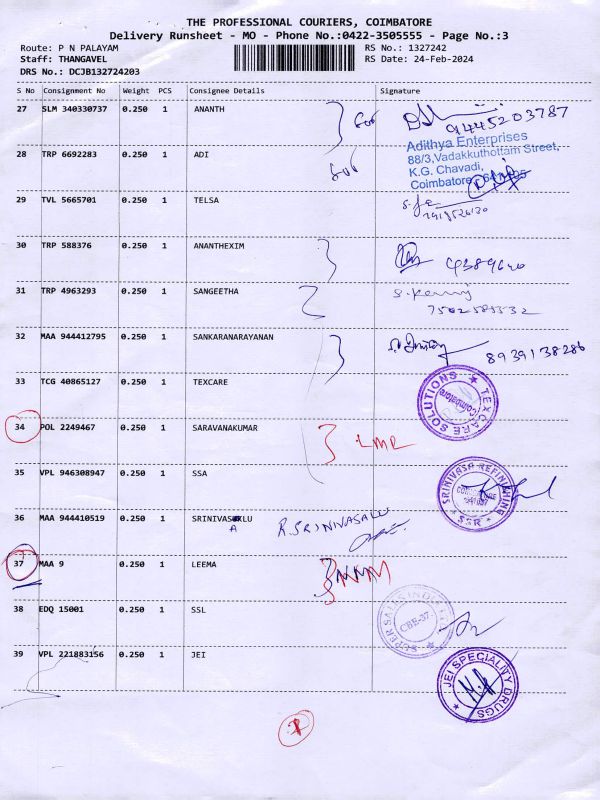 THE PROFESSIONAL COURIERS, COIMBATORE
Delivery Runsheet - MO - Phone No.:0422-3505555 - Page No.:3
Route: P N PALAYAM
RS No.: 1327242
Staff: THANGAVEL
RS Date: 24-Feb-2024
DRS No.: DCJB132724203
S No Consignment No Weight PCS Consignee Details Signature
27 SLM 340330737 0.250 1 ANANTH
9445203787
Adithya Enterprises
88/3, Vadakkuthottam Street,
K.G. Chavadi,
28 TRP 6692283 0.250 1 ADI
Coimbatore
29 TVL 5665701 0.250 1 TELSA
30 TRP 588376 0.250 1 ANANTHEXIM
31 TRP 4963293 0.250 1 SANGEETHA
32 MAA 944412795 0.250 1 SANKARANARAYANAN
8939138286
33 TCG 40865127 0.250 1 TEXCARE
TEXCARE SOLUTIONS
Coimbatore
34 POL 2249467 0.250 1 SARAVANAKUMAR
35 VPL 946308947 0.250 1 SSA
SRINIVASA REFINISHING
SSR
36 MAA 944410519 0.250 1 SRINIVASKLU
A
R.SRINIVASALU
37 MAA 9 0.250 1 LEEMA
38 EDQ 15001 0.250 1 SSL
CBE-37
39 VPL 221883156 0.250 1 JEI
JEI SPECIALITY DRUGS